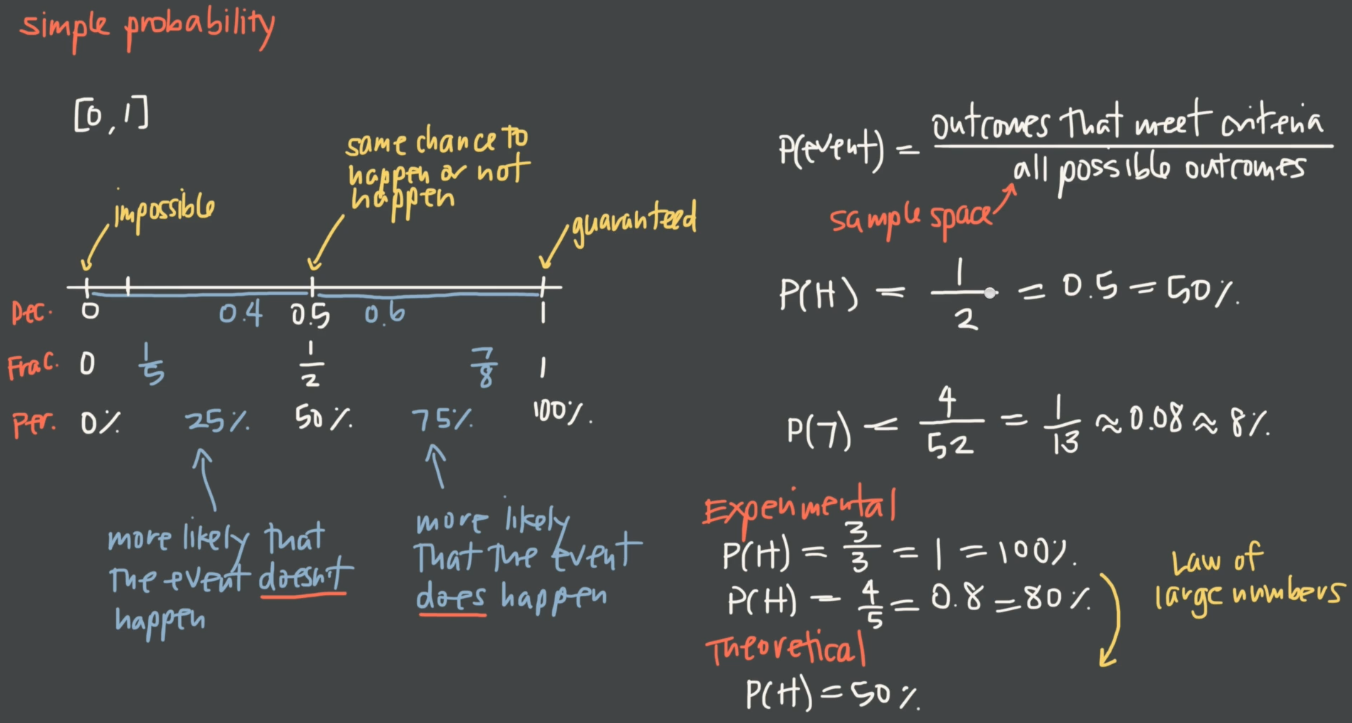 simple probability
[0,1]
impossible
same chance to
happen or not
happen
guaranteed
Dec. 0 0.4 0.5 0.6 1
Frac. 0 1/5 1/2 7/8 1
Per. 0% 25% 50% 75% 100%
more likely that
the event doesn't
happen
more likely
that the event
does happen
P(event) = outcomes that meet criteria / all possible outcomes
sample space
P(H) = 1/2 = 0.5 = 50%
P(7) = 4/52 = 1/13 ≈ 0.08 ≈ 8%
Experimental
P(H) = 3/3 = 1 = 100%
P(H) = 4/5 = 0.8 = 80%
Law of
large numbers
Theoretical
P(H) = 50%